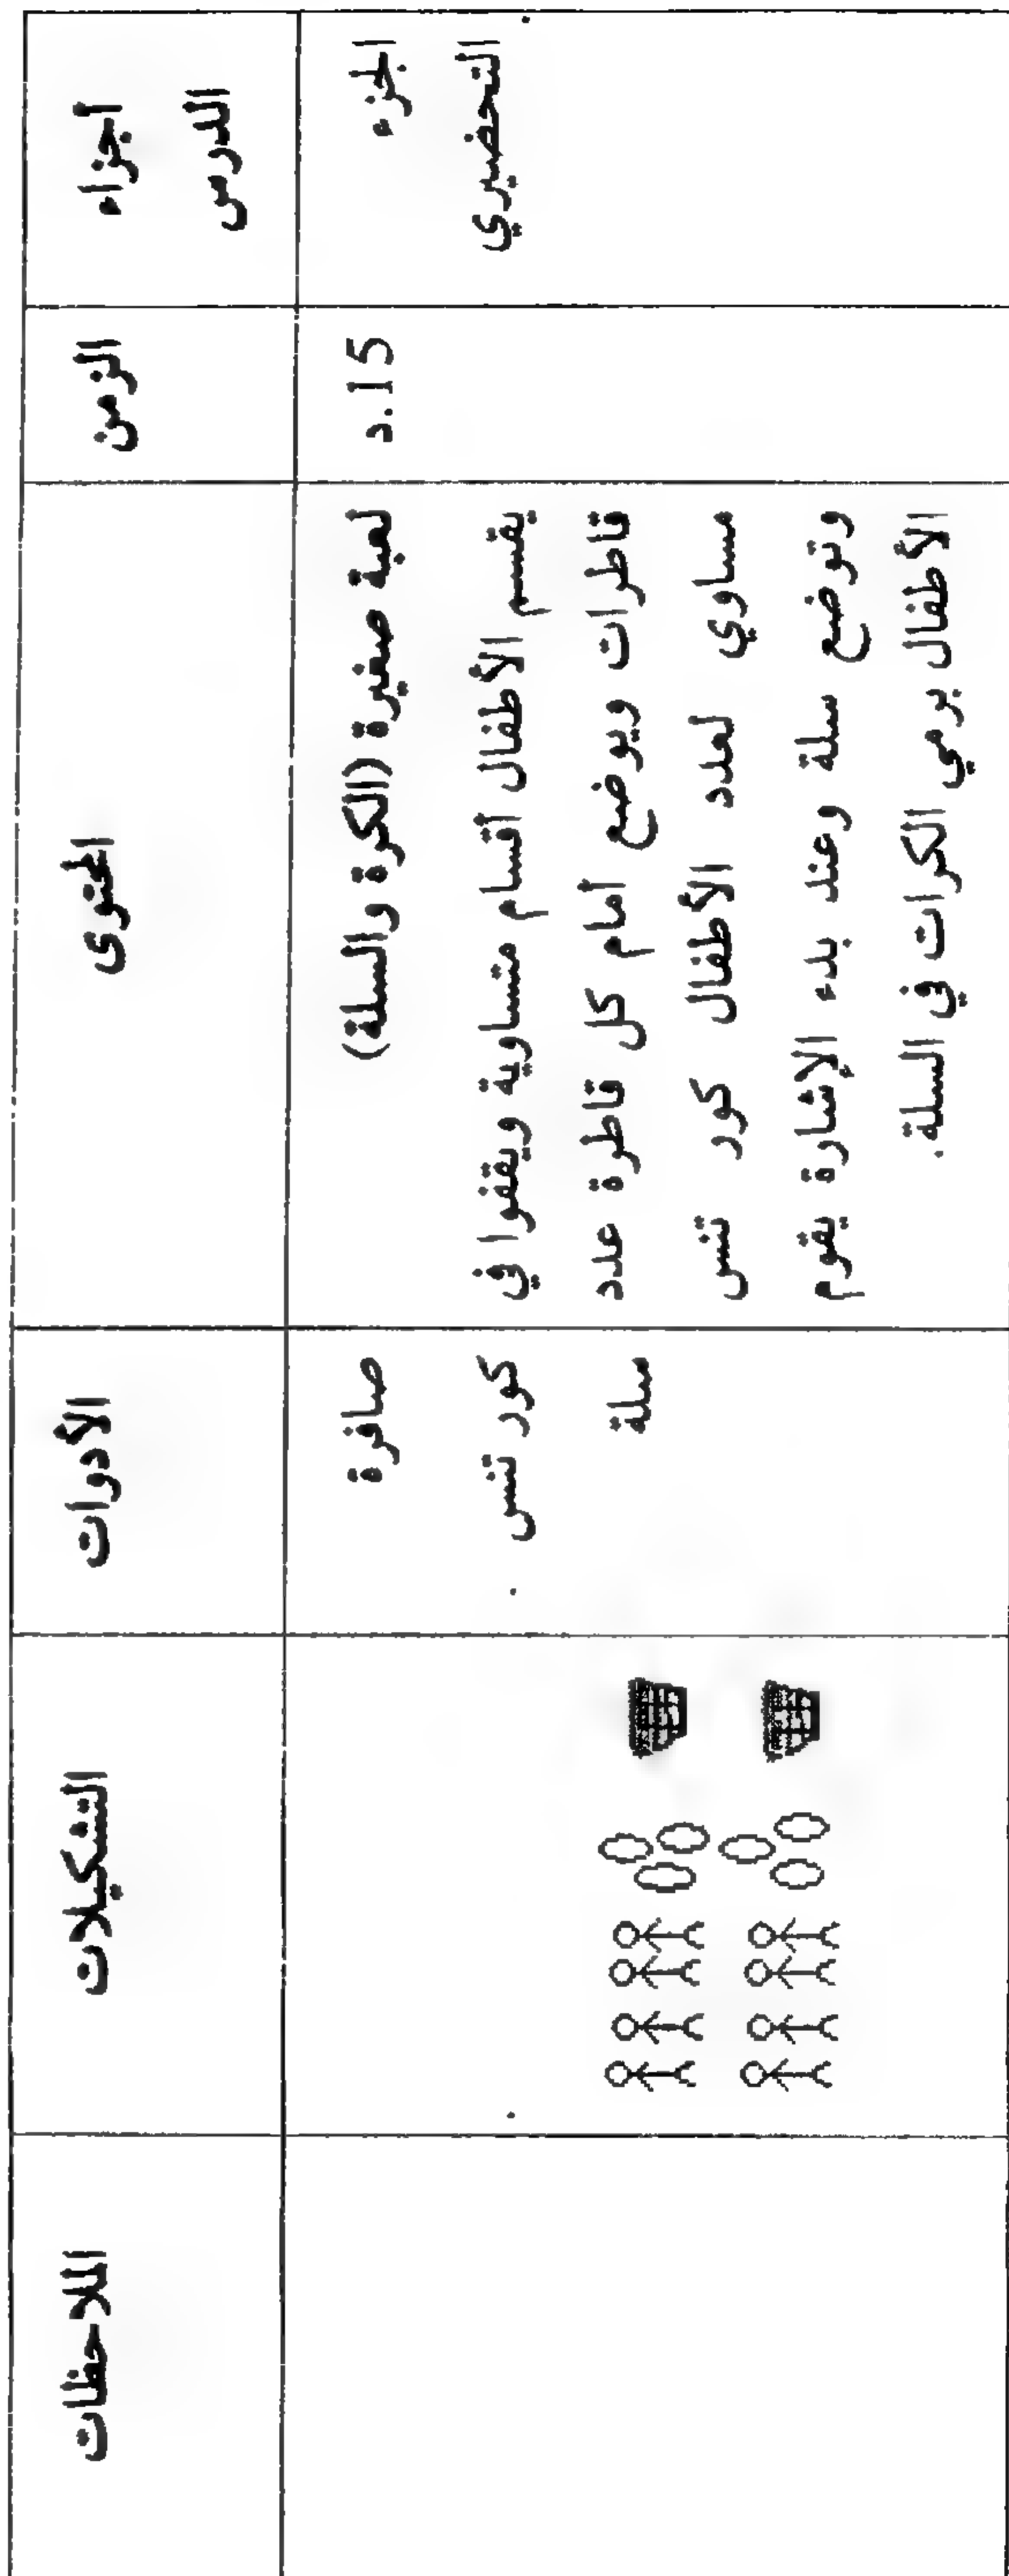 أجزاء
الدرس
الزمن
المحتوى
الأدوات
التشكيلات
الملاحظات
الجزء
التحضيري
15.د
لعبة صغيرة (الكرة والسلة)
يقسم الأطفال أقسام متساوية ويقفوا في
قاطرات ويوضع أمام كل قاطرة عدد
مساوي لعدد الأطفال كور تنس
وتوضع سلة وعند بدء الإشارة يقوم
الأطفال برمي الكرات في السلة.
صافرة
كور تنس
سلة